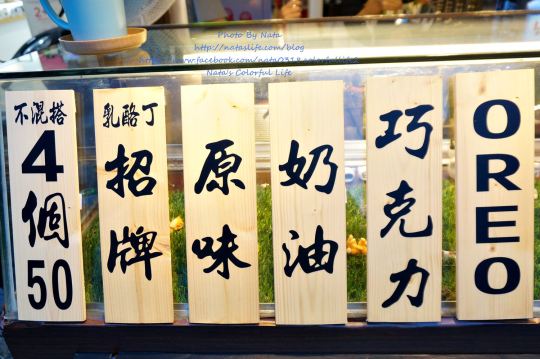 Photo By Nata
http://nataslife.com/blog
Nata's Colorful Life
不混搭
4個50
乳酪丁
招牌
原味
奶油
巧克力
OREO